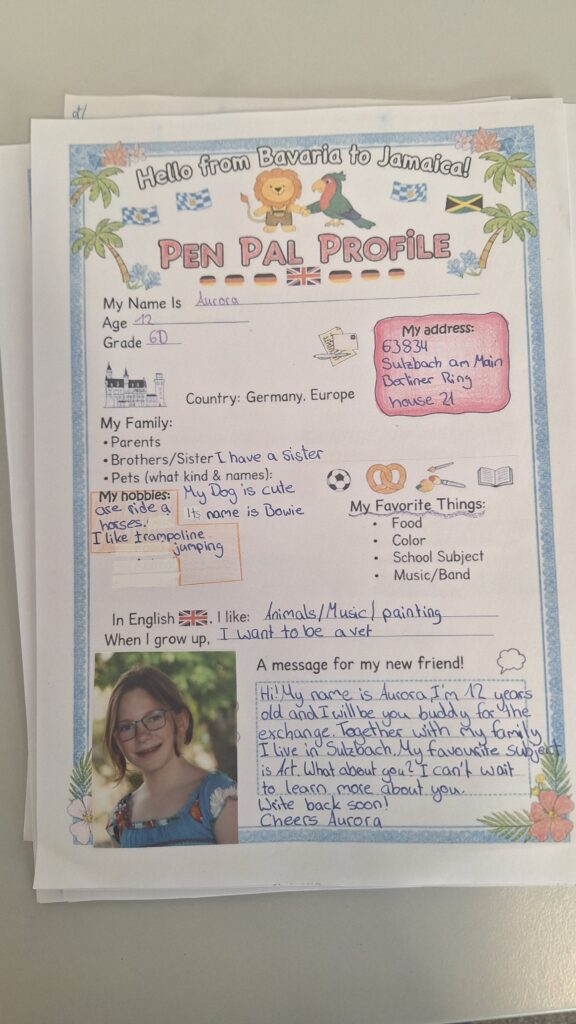 Hello from Bavaria to Jamaica!
PEN PAL PROFILE
My Name Is Aurora
Age 12
Grade 6D
My address:
63834
Sulzbach am Main
Berliner Ring
house 21
Country: Germany, Europe
My Family:
• Parents
• Brothers/Sister I have a sister
• Pets (what kind & names):
My Dog is cute
Its name is Bowie
My hobbies:
are ride a
horses.
I like trampoline
jumping
My Favorite Things:
• Food
• Color
• School Subject
• Music/Band
In English, I like: Animals/Music/painting
When I grow up, I want to be a vet
A message for my new friend!
Hi! My name is Aurora, I'm 12 years
old and I will be you buddy for the
exchange. Together with my family
I live in Sulzbach. My favourite subject
is Art. What about you? I can't wait
to learn more about you.
Write back soon!
Cheers Aurora